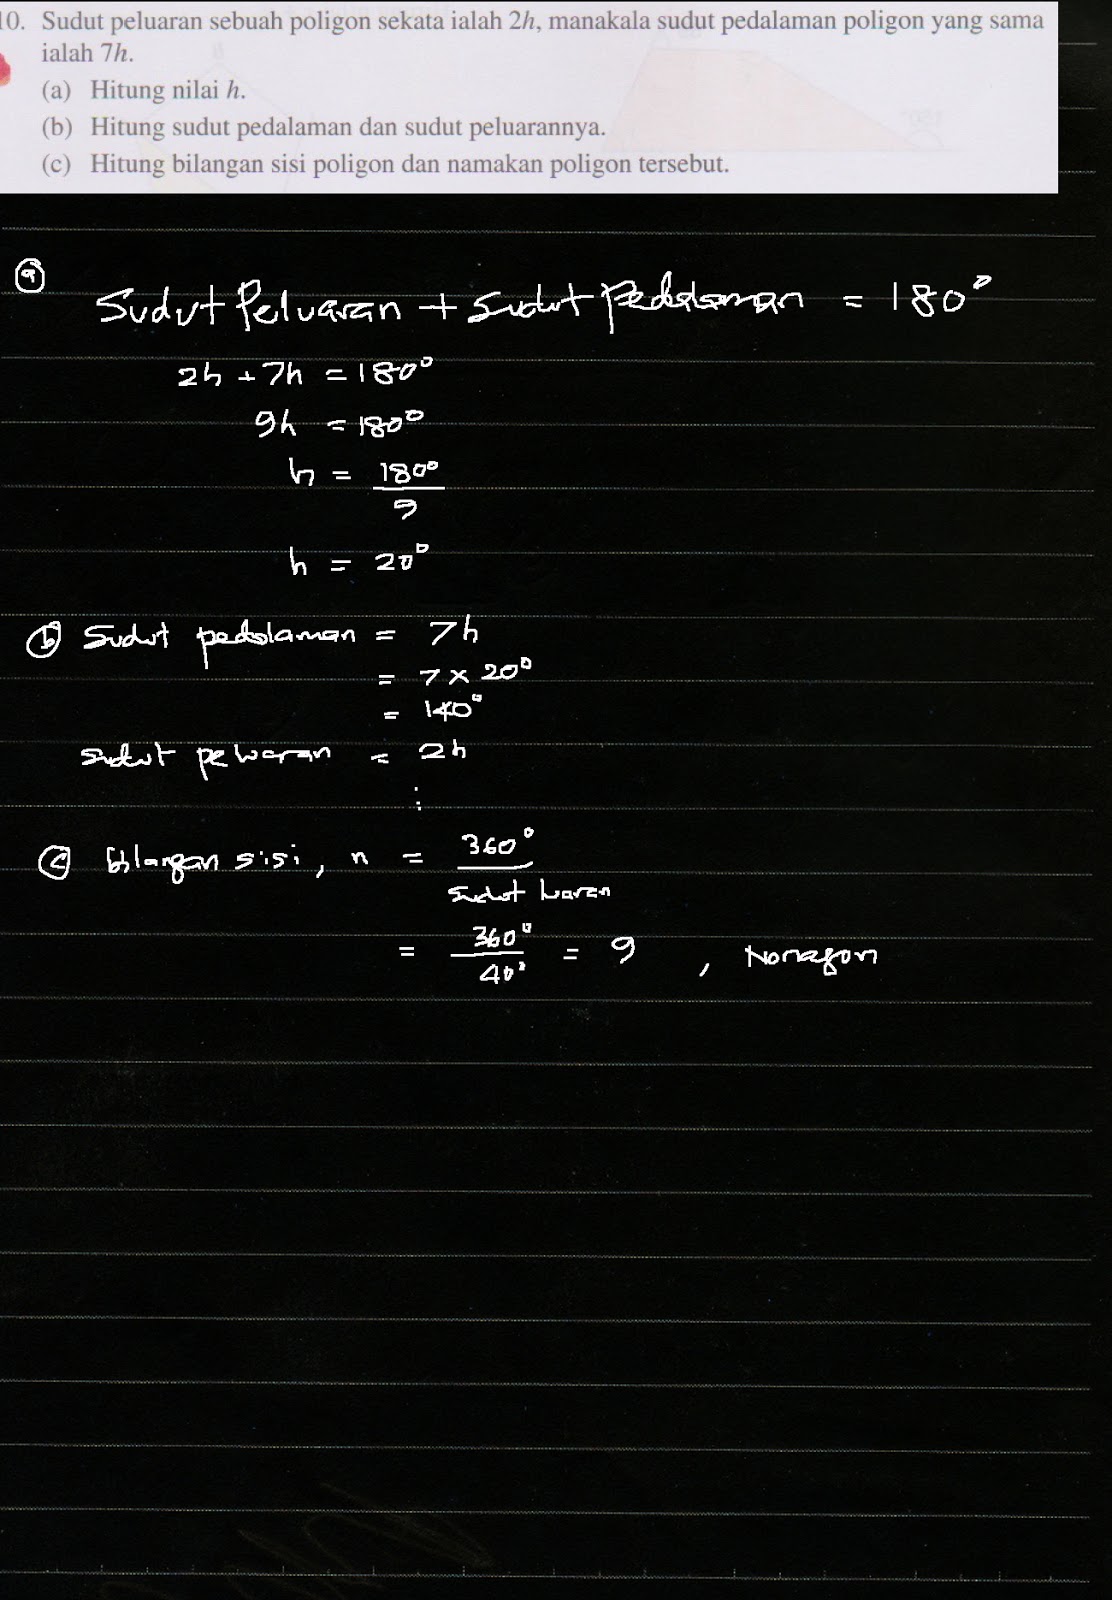 10. Sudut peluaran sebuah poligon sekata ialah 2h, manakala sudut pedalaman poligon yang sama
ialah 7h.
(a) Hitung nilai h.
(b) Hitung sudut pedalaman dan sudut peluarannya.
(c) Hitung bilangan sisi poligon dan namakan poligon tersebut.
(a)
Sudut Peluaran + Sudut Pedalaman = 180°
2h + 7h = 180°
9h = 180°
h = 180°
9
h = 20°
(b) Sudut pedalaman = 7h
= 7 × 20°
= 140°
sudut peluaran = 2h
:
(c) bilangan sisi, n = 360°
sudut luaran
= 360° = 9, Nonagon
40°